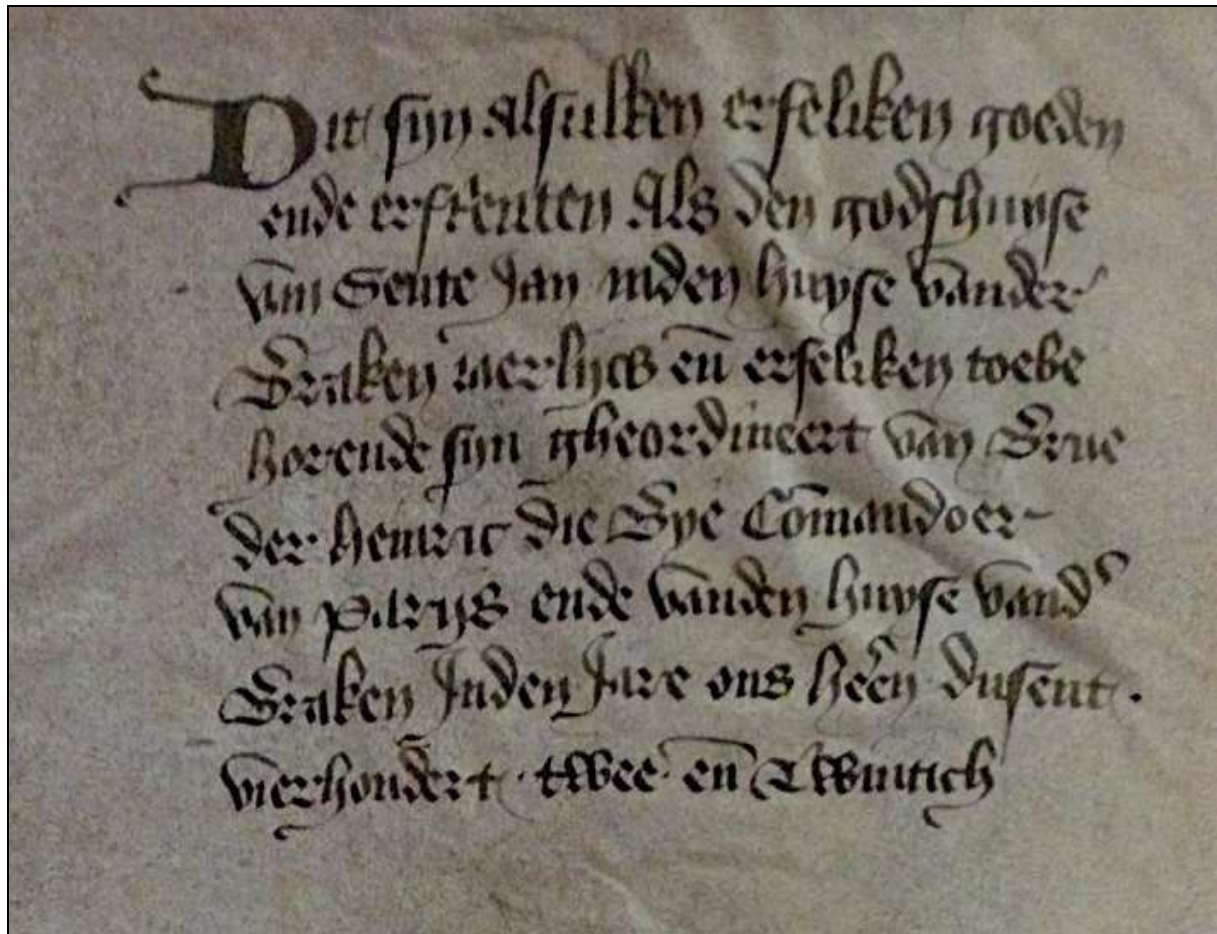 Dit sijn alsulken erfeliken goeden
ende erfrenten Als den godshuyse
van Sente Jan inden huyse vander
Braken iaerlycs en̄ erfeliken toebe
horende sijn gheordineert van Brue
der heinric die Bye Cōmandoer
van parijs ende vanden huyse vand'
Braken Jnden Jare ons hee'n dusent .
vierhondert . twee . en̄ Twintich